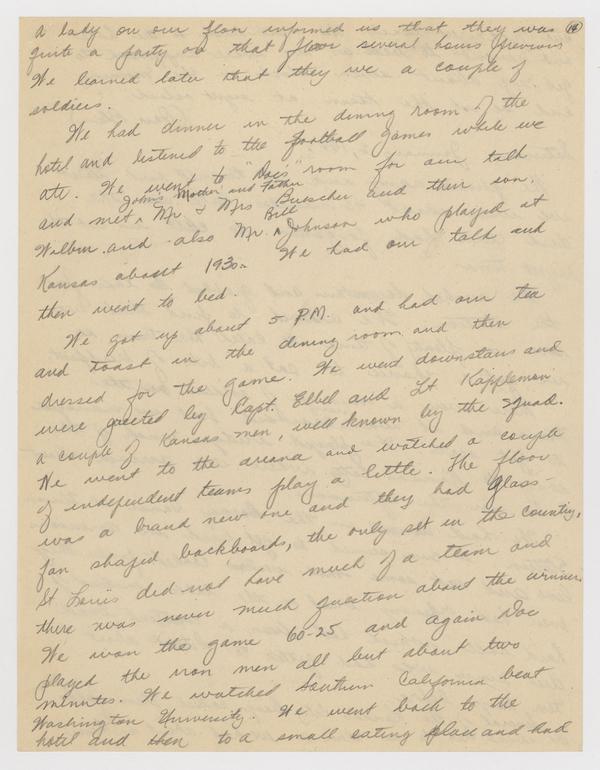 (14)
a lady on our floor informed us that they was
quite a party on that floor several hours previous
We learned later that they we a couple of
soldiers.
We had dinner in the dining room of the
hotel and listened to the football games while we
ate. We went to "Doc's" room for our talk
John's Mother and Father
and met ^ Mr & Mrs Buescher and their son.
Bill
Wilbur. and also Mr. ^ Johnson who played at
Kansas about 1930. We had our talk and
then went to bed.
We got up about 5 P.M. and had our tea
and toast in the dining room and then
dressed for the game. We went downstairs and
were greeted by Capt. Elbel and Lt Kappleman
a couple of Kansas men, well known by the squad.
We went to the areana and watched a couple
of independent teams play a little. The floor
was a brand new one and they had glass-
fan shaped backboards, the only set in the country,
St Louis did not have much of a team and
there was never much question about the winner.
We won the game 60-25 and again Doc
played the iron men all but about two
minutes. We watched Southern California beat
Washington University. We went back to the
hotel and then to a small eating place and had